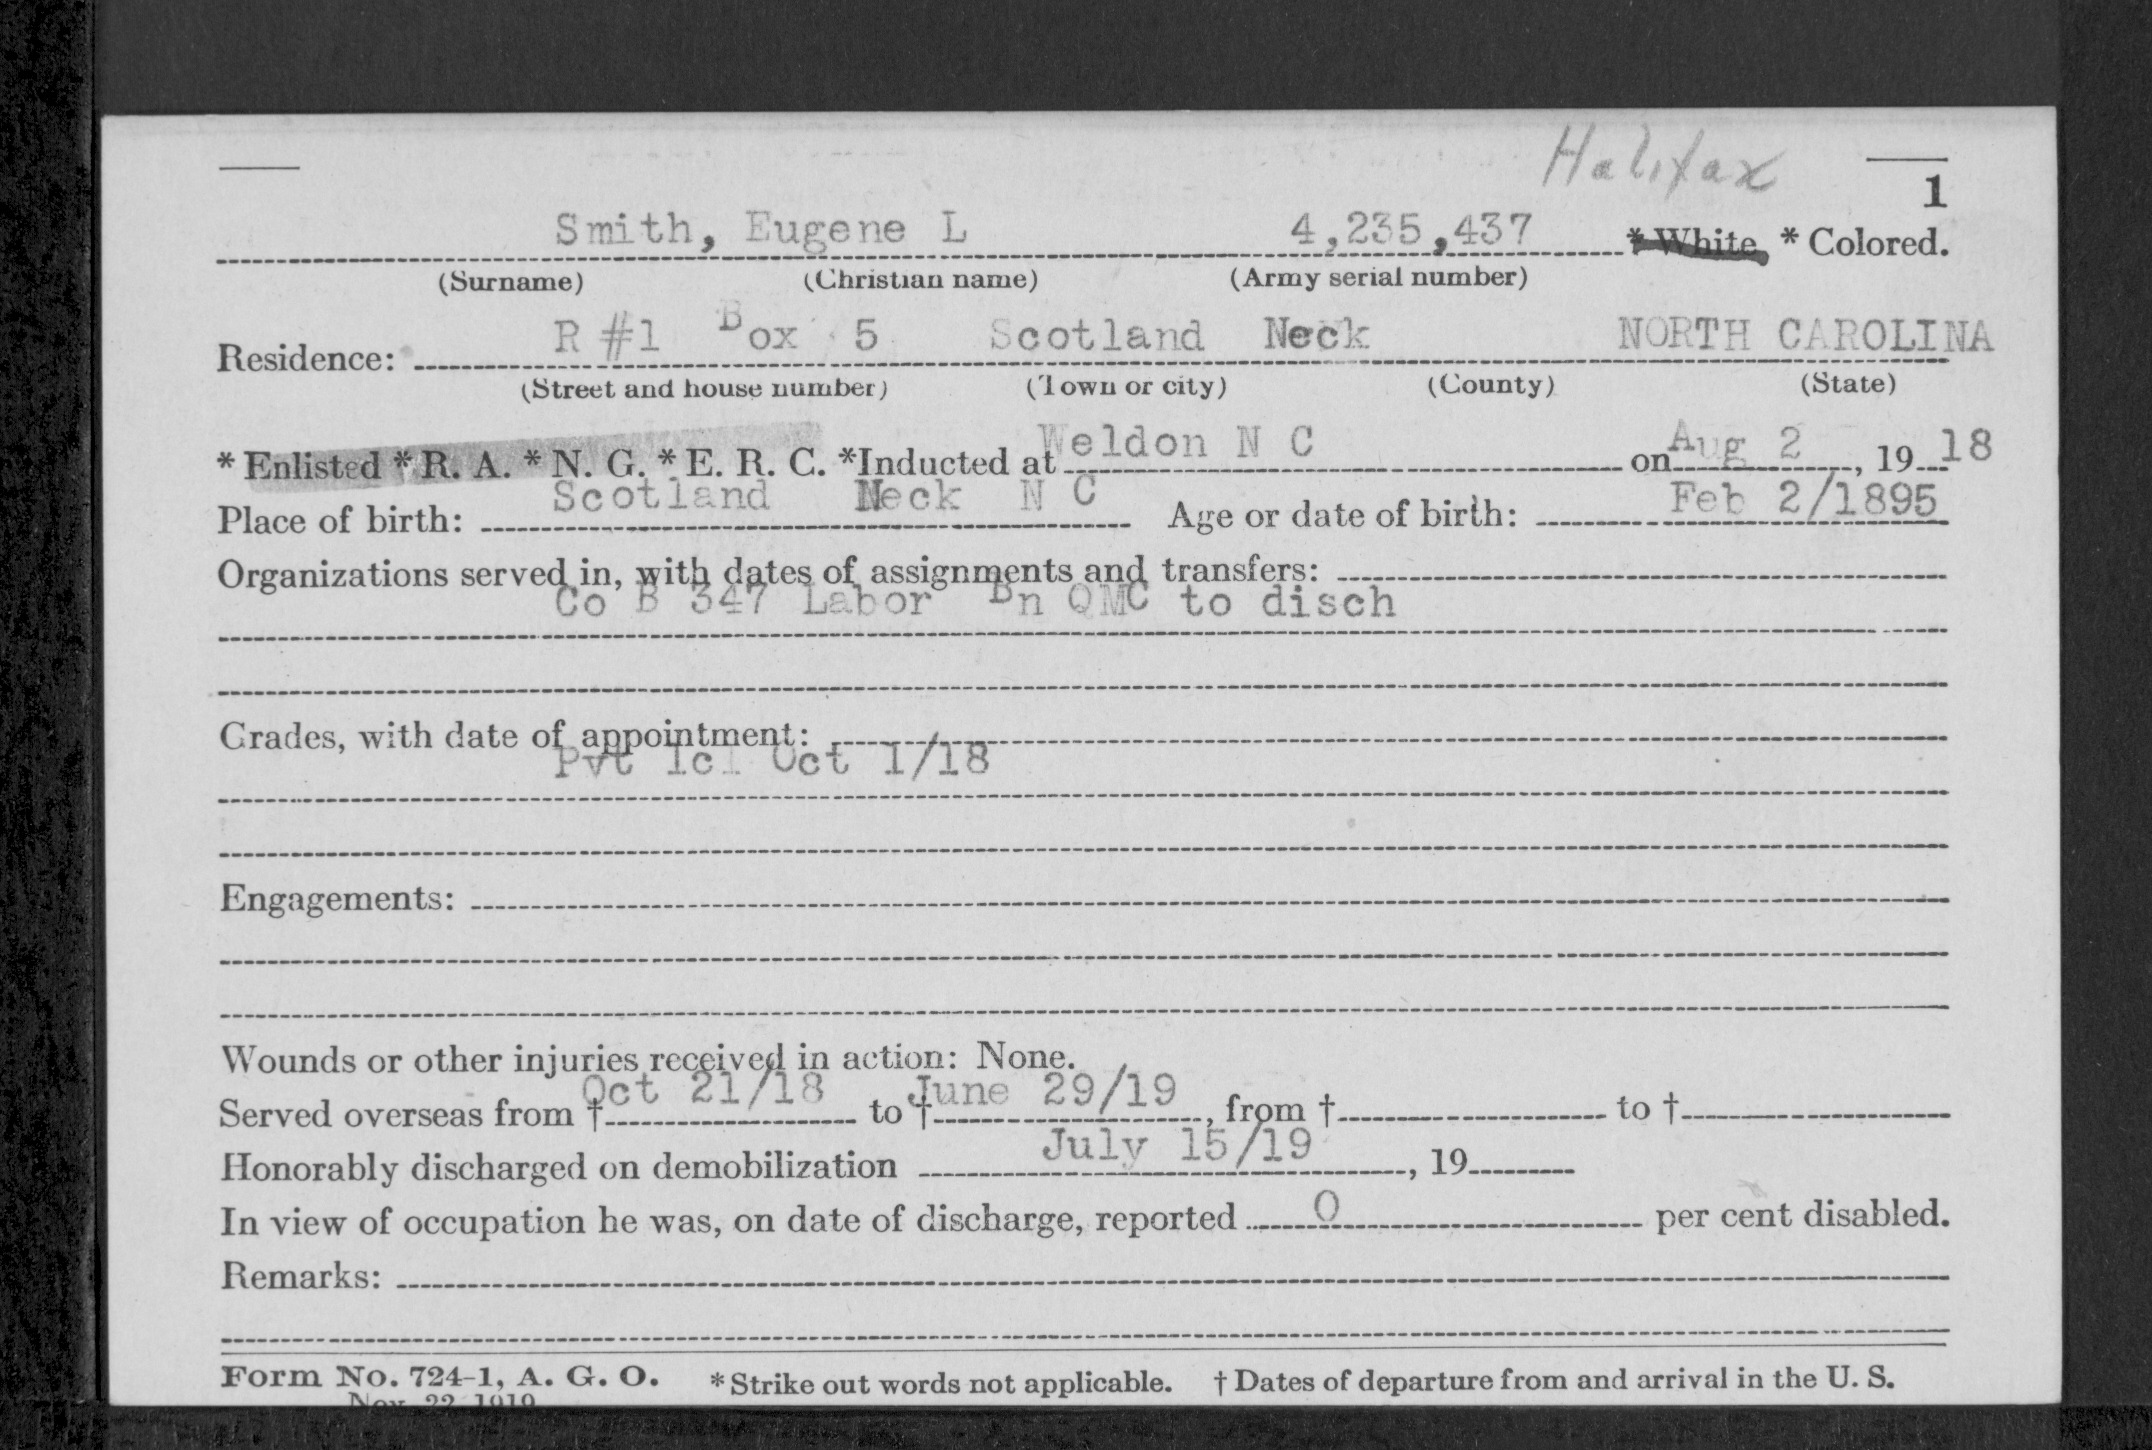 Halifax
1
Smith, Eugene L 4,235,437 * White * Colored.
(Surname) (Christian name) (Army serial number)
Residence: R #1 Box 5 Scotland Neck NORTH CAROLINA
(Street and house number) (Town or city) (County) (State)
* Enlisted * R. A. * N. G. * E. R. C. *Inducted at Weldon N C on Aug 2, 19 18
Place of birth: Scotland Neck N C Age or date of birth: Feb 2/1895
Organizations served in, with dates of assignments and transfers:
Co B 347 Labor Bn QMC to disch
Grades, with date of appointment:
Pvt 1cl Oct 1/18
Engagements:
Wounds or other injuries received in action: None.
Served overseas from † Oct 21/18 to † June 29/19, from † to †
Honorably discharged on demobilization July 15/19, 19
In view of occupation he was, on date of discharge, reported 0 per cent disabled.
Remarks:
Form No. 724-1, A. G. O. * Strike out words not applicable. † Dates of departure from and arrival in the U. S.
Nov. 22 1919